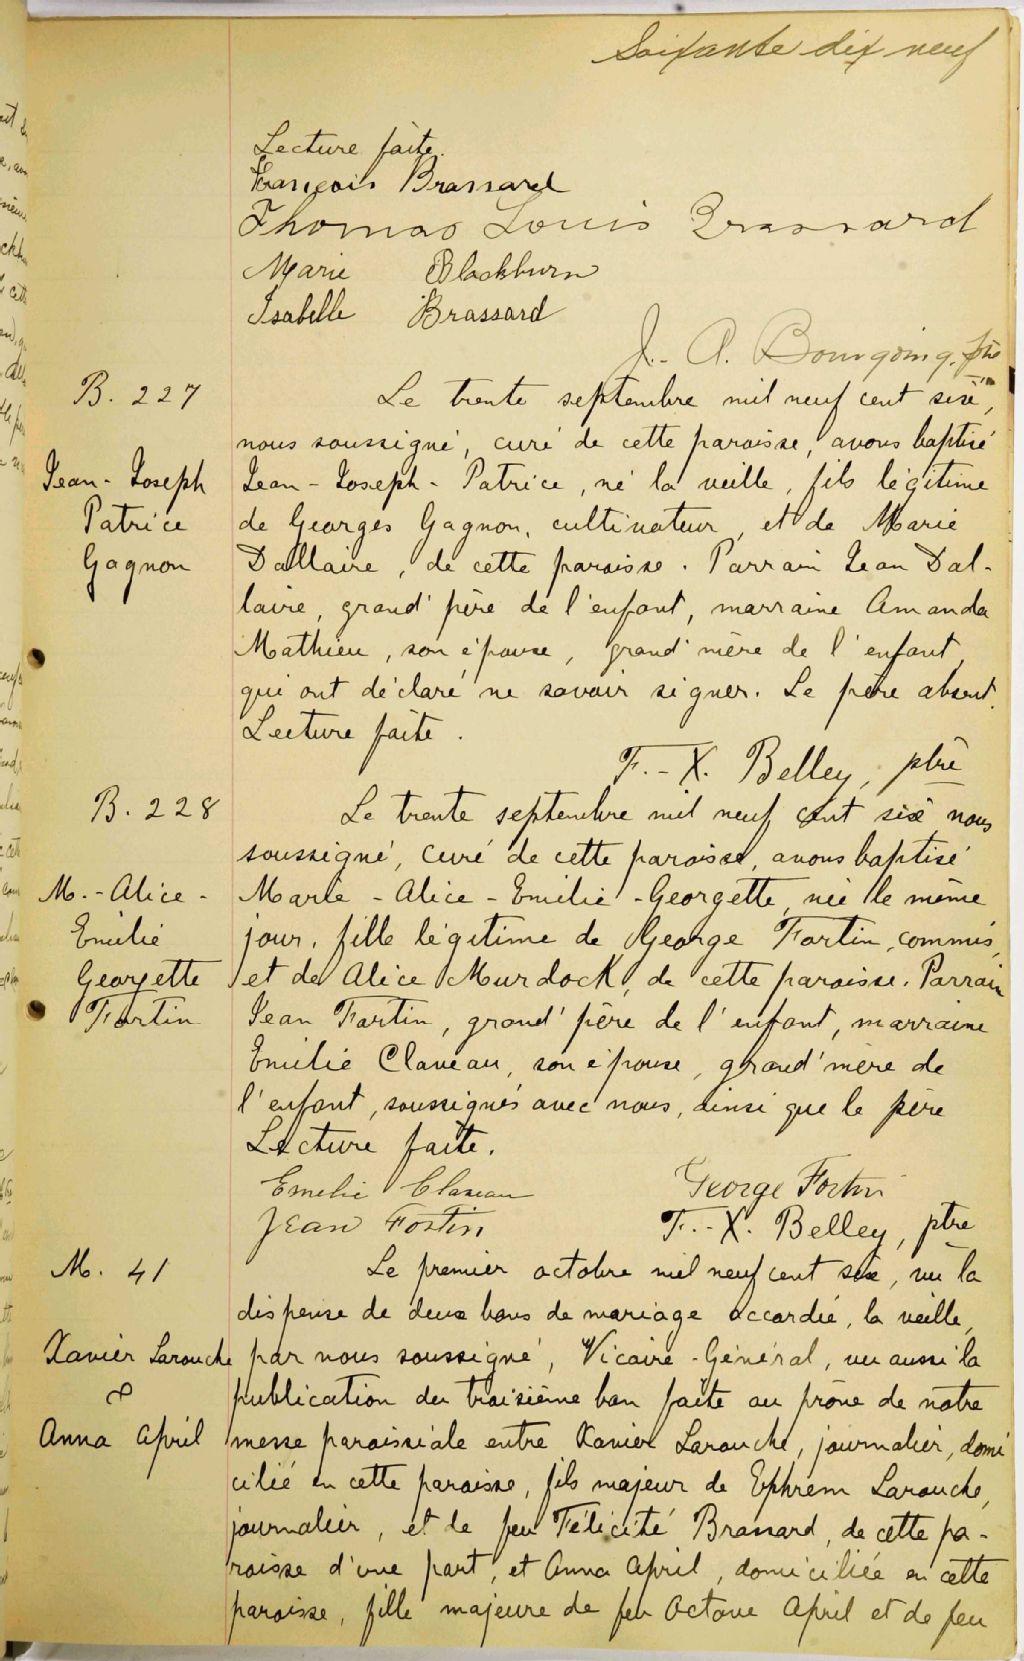 Soixante dix neuf
Lecture faite.
François Brassard
Thomas Louis Brassard
Marie Blackburn
Isabelle Brassard
J.- A. Bourgoing, ptre
B. 227
Le trente septembre mil neuf cent six,
nous soussigné, curé de cette paroisse, avons baptisé
Jean - Joseph
Patrice
Gagnon
Jean - Joseph - Patrice, né la veille, fils légitime
de Georges Gagnon, cultivateur, et de Marie
Dallaire, de cette paroisse. Parrain Jean Dal-
laire, grand'père de l'enfant, marraine Amanda
Mathieu, son épouse, grand'mère de l'enfant,
qui ont déclaré ne savoir signer. Le père absent.
Lecture faite.
F.- X. Belley, ptre
B. 228
Le trente septembre mil neuf cent six nous
soussigné, curé de cette paroisse, avons baptisé
M.- Alice -
Emilie
Georgette
Fortin
Marie - Alice - Emilie - Georgette, née le même
jour, fille légitime de George Fortin, commis,
et de Alice Murdock, de cette paroisse. Parrain
Jean Fortin, grand'père de l'enfant, marraine
Emilie Claveau, son épouse, grand'mère de
l'enfant, soussignés avec nous, ainsi que le père
Lecture faite.
Emelie Claveau
George Fortin
Jean Fortin
F.- X. Belley, ptre
M. 41
Le premier octobre mil neuf cent six, vu la
dispense de deux bans de mariage accordée, la veille,
Xavier Larouche
&
Anna April
par nous soussigné, Vicaire-Général, vu aussi la
publication du troisième ban faite au prône de notre
messe paroissiale entre Xavier Larouche, journalier, domi
cilié en cette paroisse, fils majeur de Ephrem Larouche,
journalier, et de feu Félicité Brassard, de cette pa-
roisse d'une part, et Anna April, domiciliée en cette
paroisse, fille majeure de feu Octave April et de feu